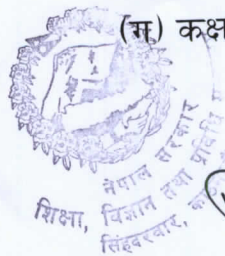 (ग्र) कक्ष
नेपाल सरकार
शिक्षा, विज्ञान तथा प्रविधि
सिंहदरबार,